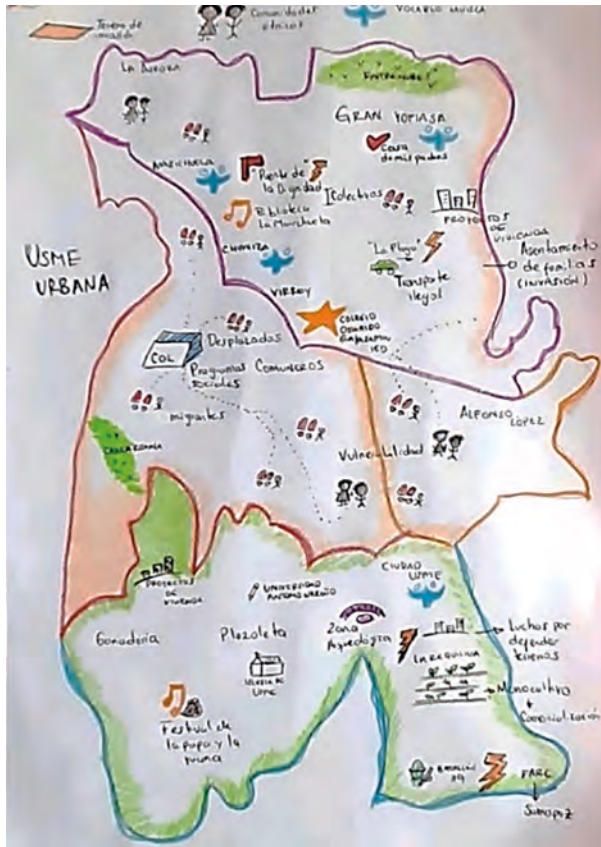 Terreno de
Comunidades
VOCABLO MUISCA
LA AURORA
ENTRENUBES
GRAN YOMASA
Casa
de mis padres
MARICHUELA
"Puente de
la Dignidad
Colectivos
Biblioteca
La Marichuela
PROYECTOS
DE
VIVIENDA
CHUNIZA
"La Playa"
Transporte
ilegal
Asentamiento
de familias
(INVASIÓN)
USME
URBANA
VIRREY
COLEGIO
OSWALDO
GUAYASAMIN
IED
Desplazados
COL
Programas COMUNEROS
sociales
migrantes
ALFONSO
LÓPEZ
Vulnerabilidad
CANTARRANA
PROYECTOS
DE
VIVIENDA
UNIVERSIDAD
ANTONIO NARIÑO
CIUDAD
USME
Ganadería
Plazoleta
Zona
Arqueológica
Luchas por
defender
tierras
LA REQUILINA
IGLESIA DE
USME
Monocultivo
+
Comercialización
Festival de
la papa y la
ruana
BATALLÓN
FARC
Sumapaz